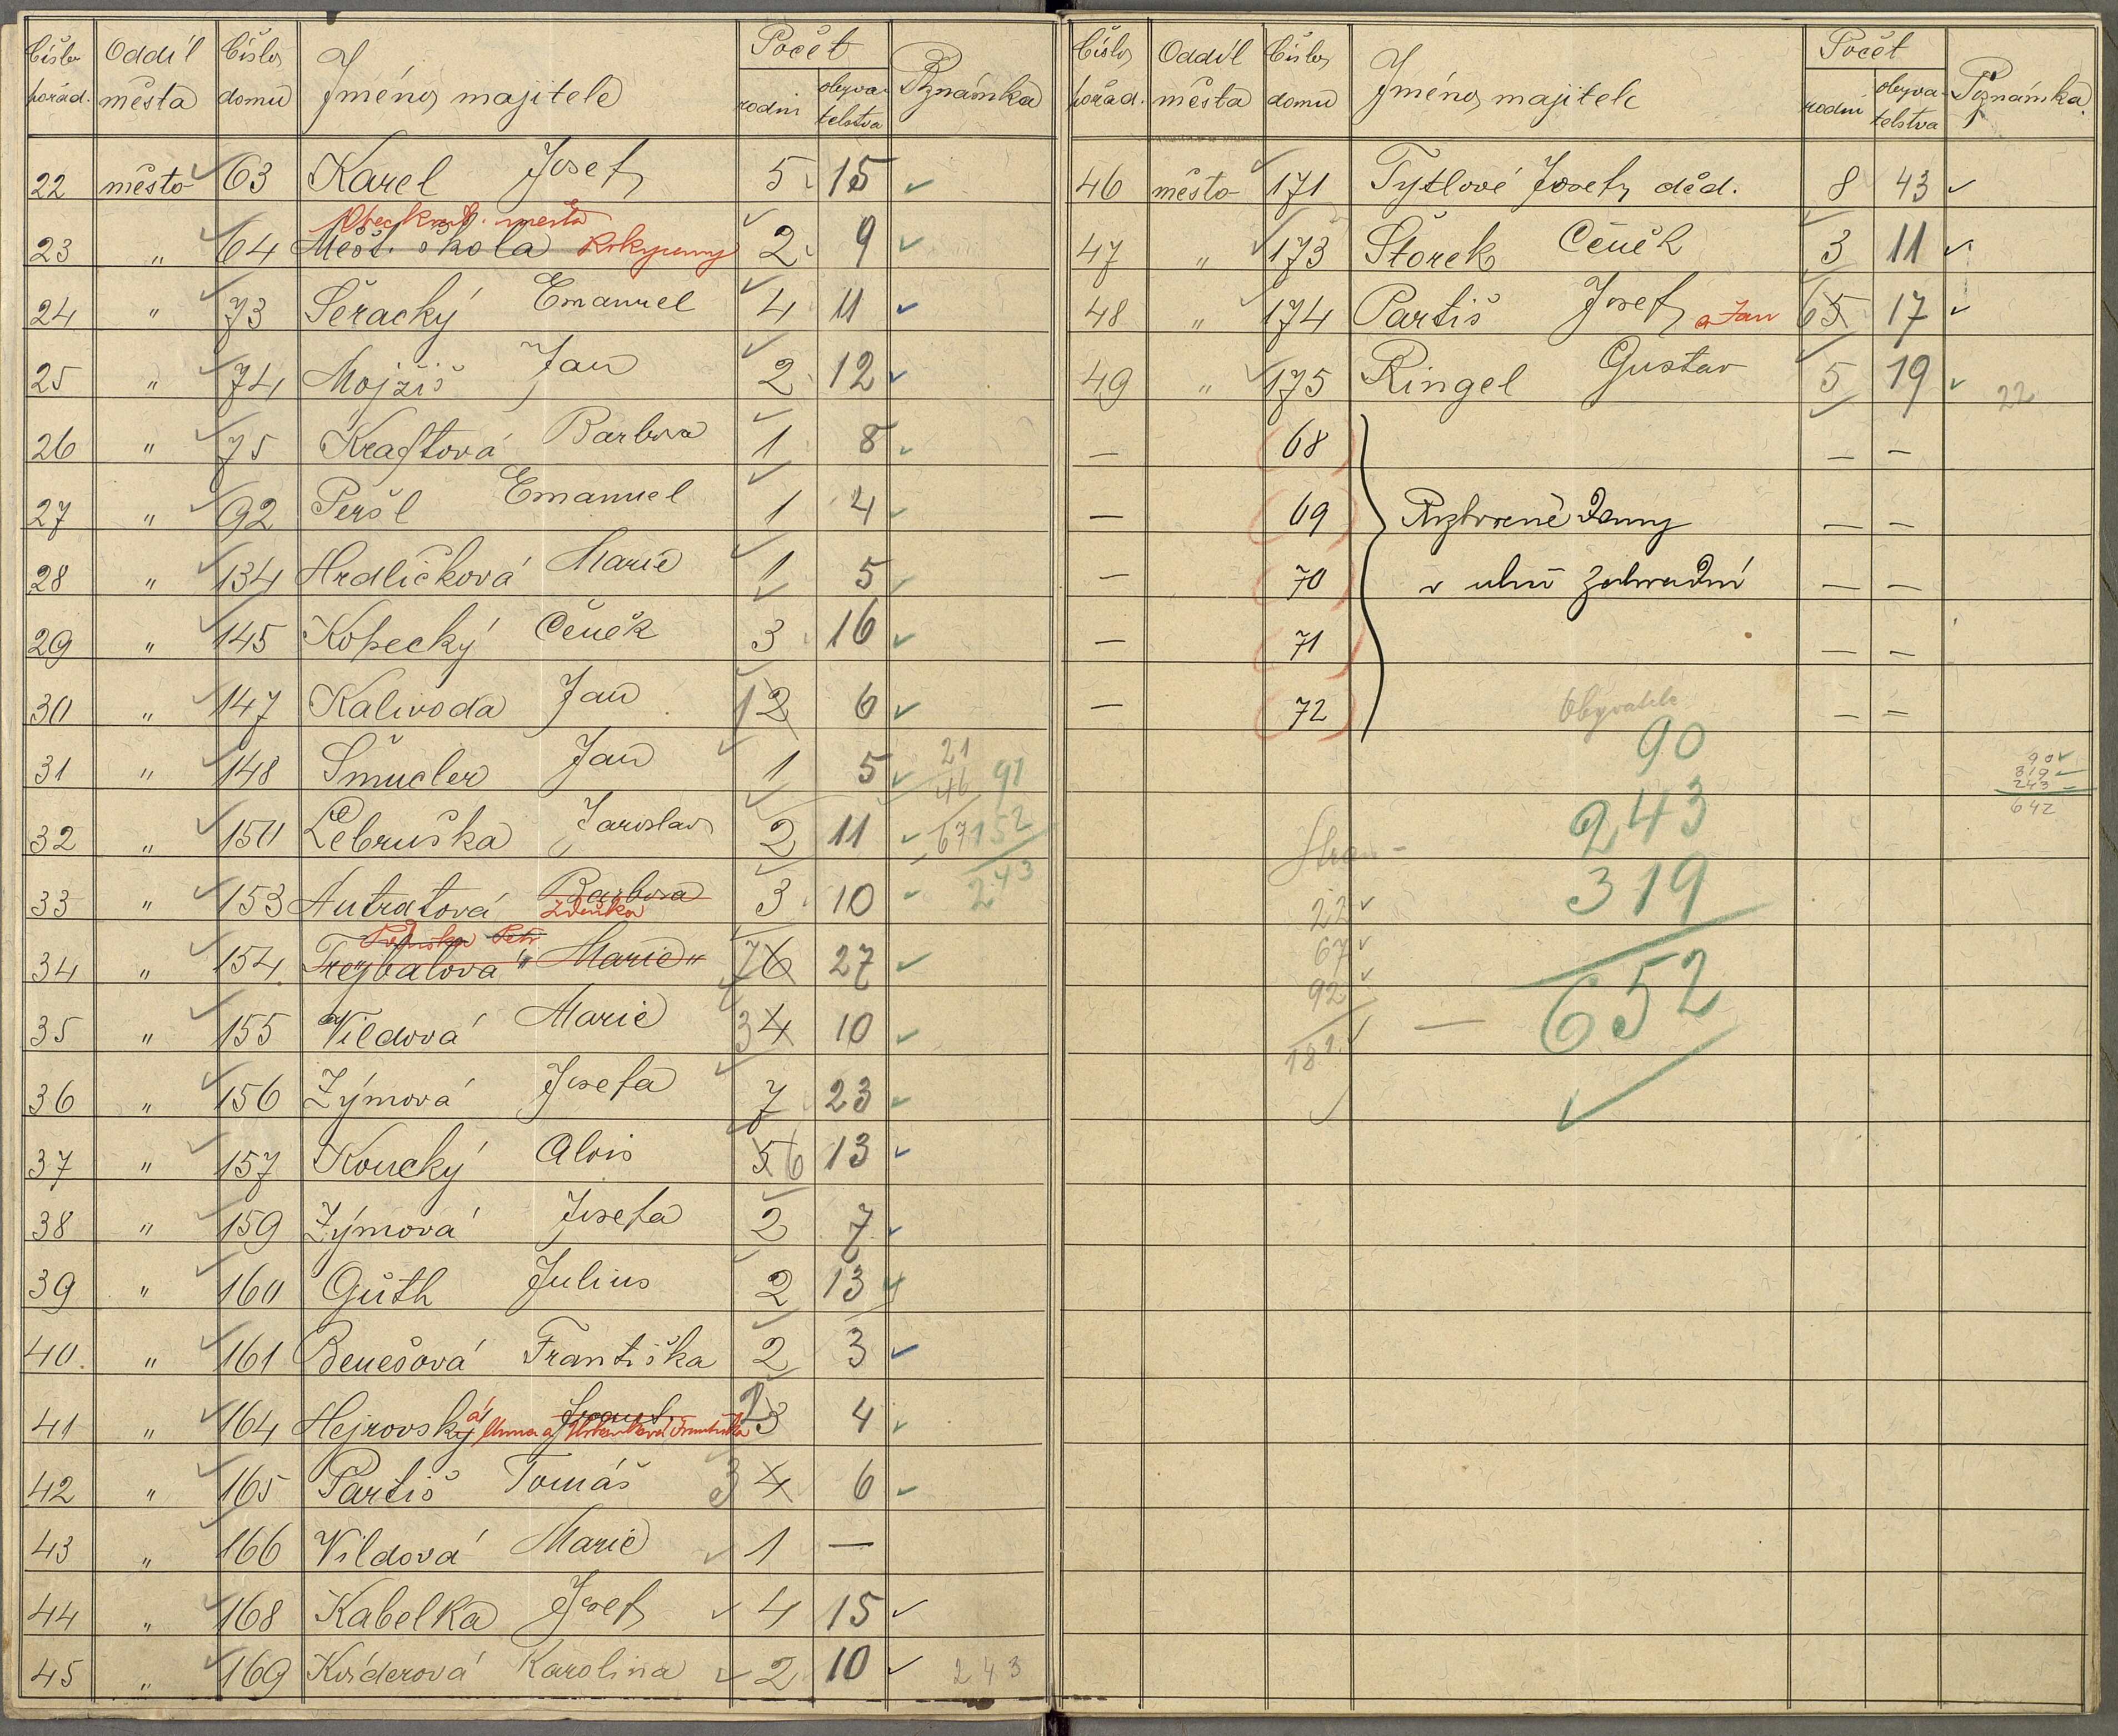 Číslo pořád. Oddíl města Číslo domu Jméno majitele Počet rodin obyvatelstva Poznámka
22 město 63 Karel Josef 5 15
23 " 64 Měšt. škola Rokycany 2 9
24 " 73 Šeracký Emanuel 4 11
25 " 74 Mojžíš Jan 2 12
26 " 75 Kraftová Barbora 1 8
27 " 92 Peršl Emanuel 1 4
28 " 134 Hrdličková Marie 1 5
29 " 145 Kopecký Čeněk 3 16
30 " 147 Kalivoda Jan 1 2 6
31 " 148 Šmucler Jan 1 5 21 46 91
32 " 150 Lebruška Jaroslav 2 11 67 152
33 " 153 Autratová Barbora Zdeňka 3 10 243
34 " 154 Trejbalová Marie Petr 7 6 27
35 " 155 Vildová Marie 3 4 10
36 " 156 Zýmová Josefa 7 23
37 " 157 Koucký Alois 5 6 13
38 " 159 Zýmová Josefa 2 7
39 " 160 Güth Julius 2 13
40. " 161 Benešová Františka 2 3
41 " 164 Hejrovský á Anna a Františka 2 3 4
42 " 165 Partiš Tomáš 3 4 6
43 " 166 Vildová Marie 1 —
44 " 168 Kabelka Josef 4 15
45 " 169 Kviderová Karolina 2 10 243
Číslo pořád. Oddíl města Číslo domu Jméno majitele Počet rodin obyvatelstva Poznámka
46 město 171 Tytlové Josefy děd. 8 43
47 " 173 Štorek Čeněk 3 11
48 " 174 Partiš Josef a Jan 6 5 17
49 " 175 Ringel Gustav 5 19 22
— (68) — —
— (69) Roztvorené Domy — —
— (70) v ulici Zahradní — —
— (71) — —
— (72) — —
Obyvatelé
90
243
319
652
Stran
22
67
92
181
90
319
243
642